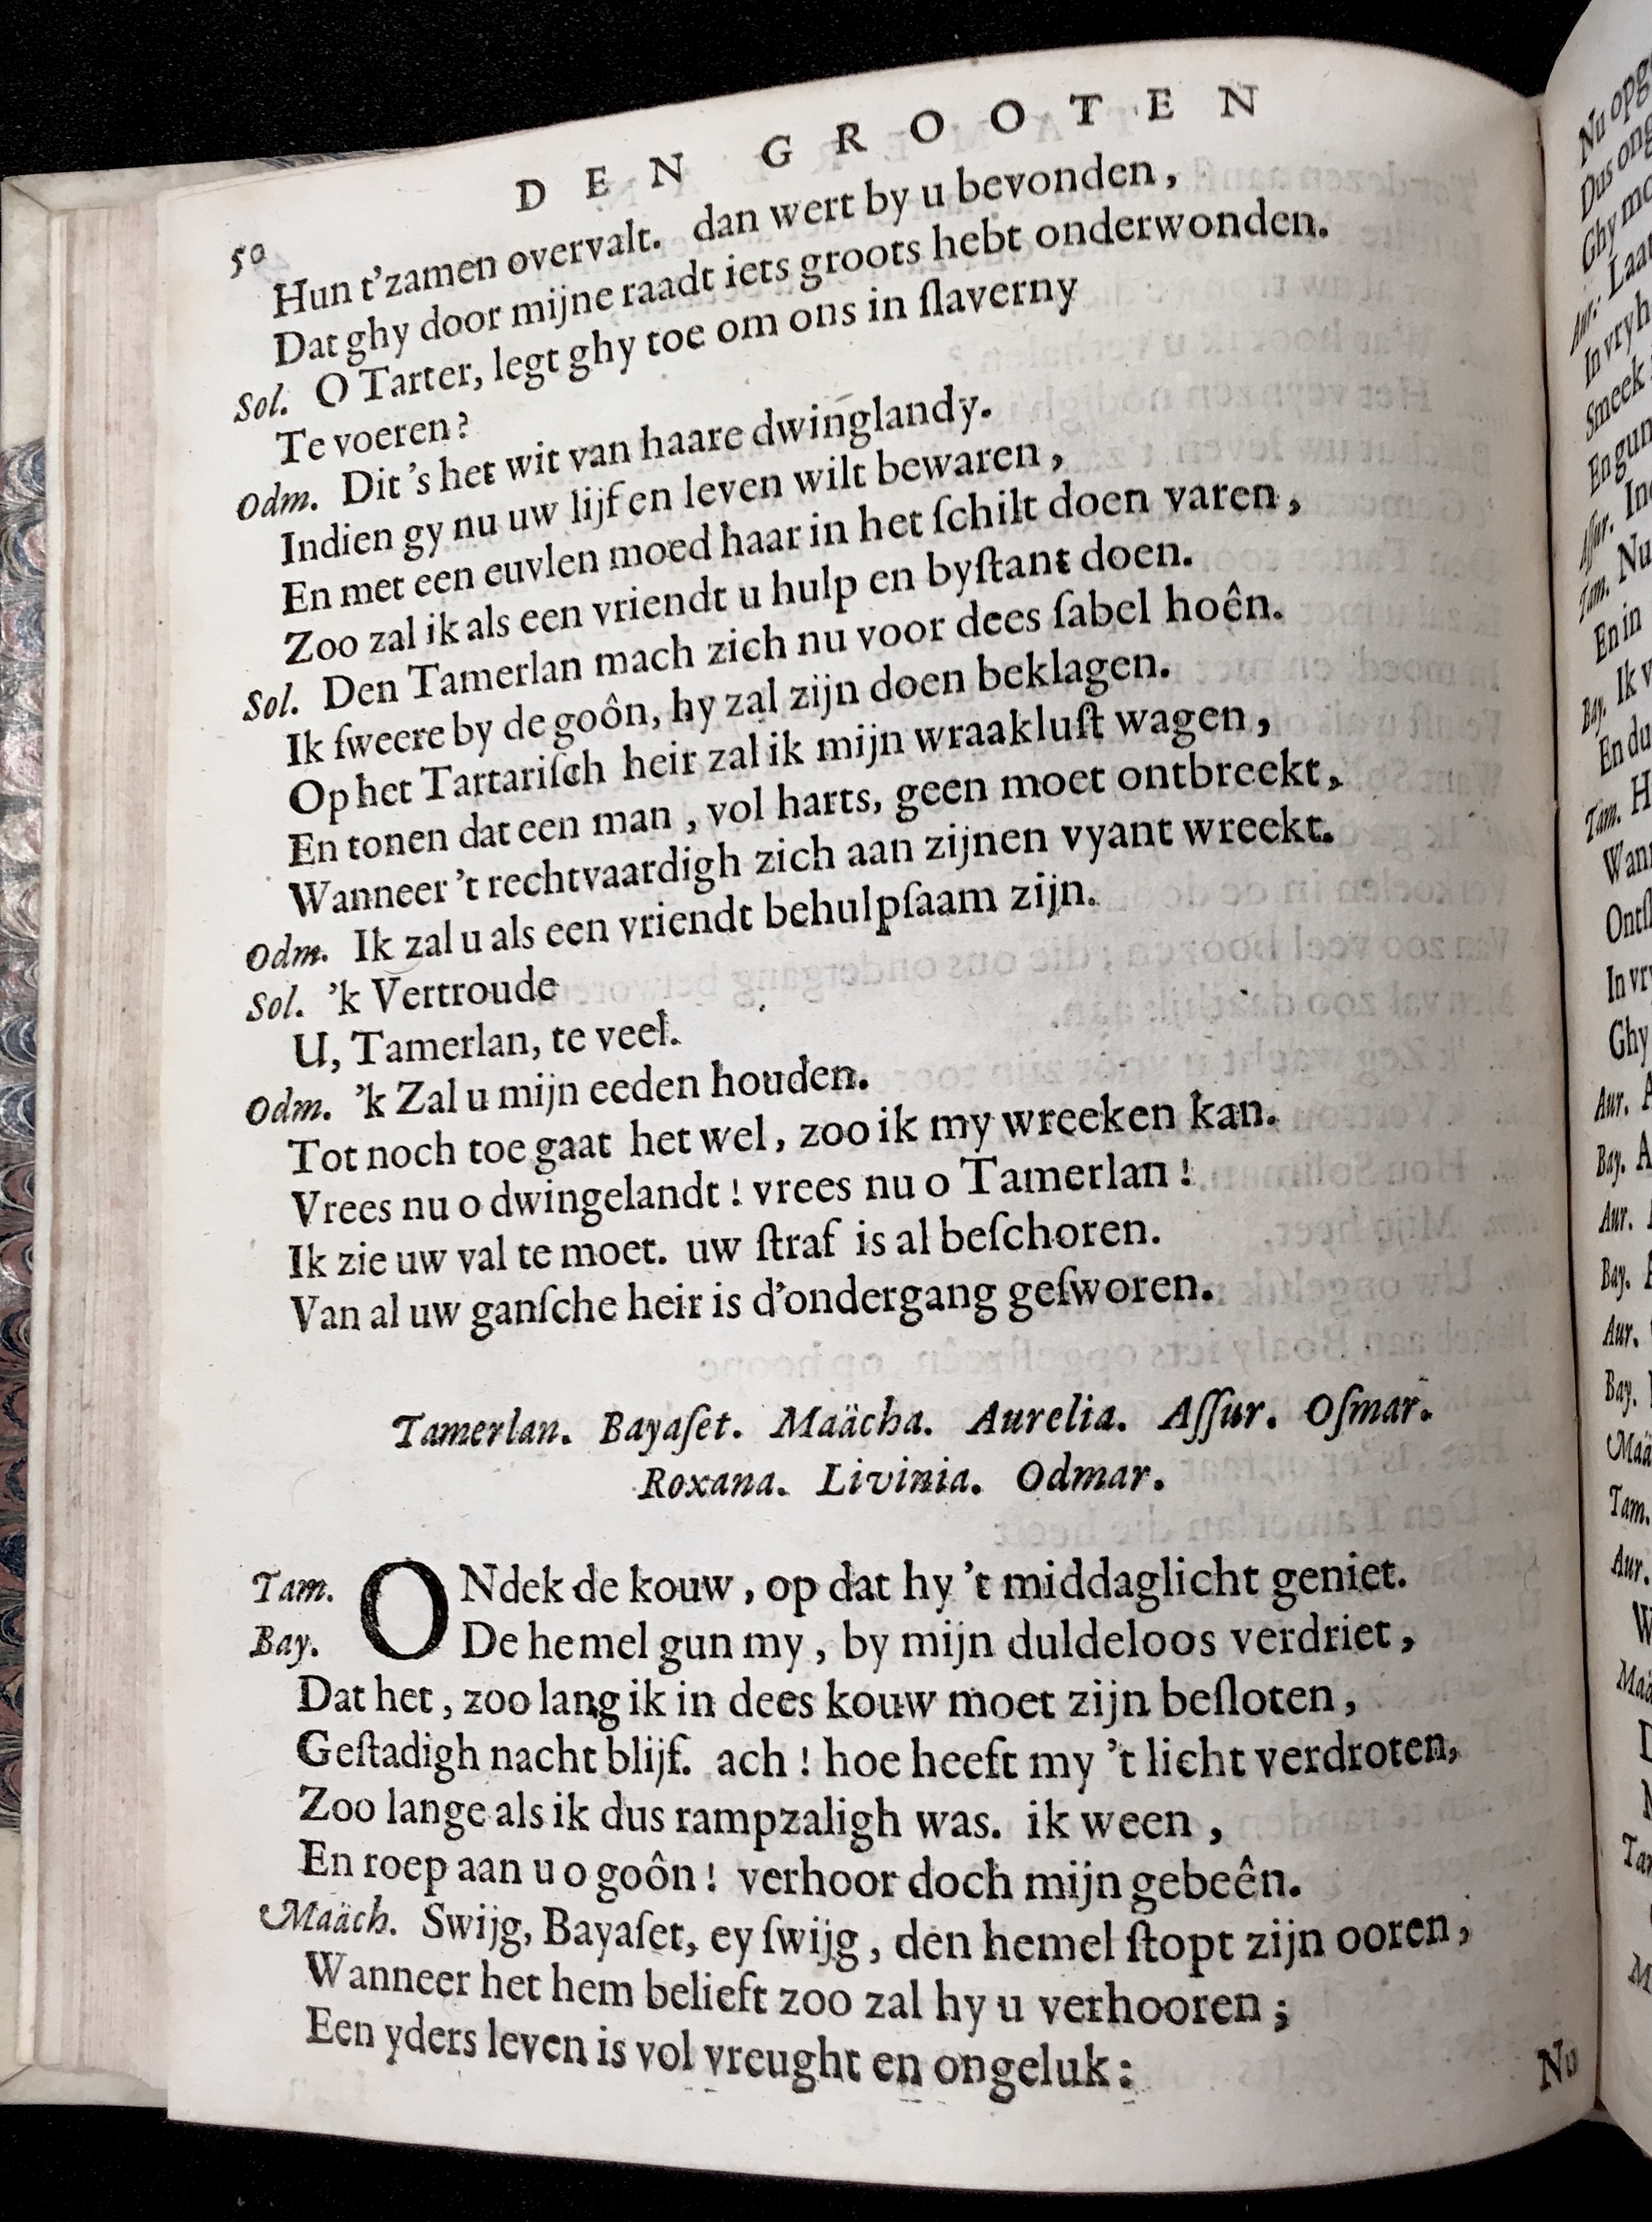 50 DEN GROOTEN
Hun t'zamen overvalt. dan wert by u bevonden,
Dat ghy door mijne raadt iets groots hebt onderwonden.
Sol. O Tarter, legt ghy toe om ons in ſlaverny
Te voeren?
Odm. Dit's het wit van haare dwinglandy.
Indien gy nu uw lijf en leven wilt bewaren,
En met een euvlen moed haar in het ſchilt doen varen,
Zoo zal ik als een vriendt u hulp en byſtant doen.
Sol. Den Tamerlan mach zich nu voor dees ſabel hoên.
Ik ſweere by de goôn, hy zal zijn doen beklagen.
Op het Tartariſch heir zal ik mijn wraakluſt wagen,
En tonen dat een man, vol harts, geen moet ontbreekt,
Wanneer 't rechtvaardigh zich aan zijnen vyant wreekt.
Odm. Ik zal u als een vriendt behulpſaam zijn.
Sol. 'k Vertroude
U, Tamerlan, te veel.
Odm. 'k Zal u mijn eeden houden.
Tot noch toe gaat het wel, zoo ik my wreeken kan.
Vrees nu o dwingelandt! vrees nu o Tamerlan!
Ik zie uw val te moet. uw ſtraf is al beſchoren.
Van al uw ganſche heir is d'ondergang geſworen.
Tamerlan. Bayaſet. Maächa. Aurelia. Aſſur. Oſmar.
Roxana. Livinia. Odmar.
Tam. ONdek de kouw, op dat hy 't middaglicht geniet.
Bay. De hemel gun my, by mijn duldeloos verdriet,
Dat het, zoo lang ik in dees kouw moet zijn beſloten,
Geſtadigh nacht blijf. ach! hoe heeft my 't licht verdroten,
Zoo lange als ik dus rampzaligh was. ik ween,
En roep aan u o goôn! verhoor doch mijn gebeên.
Maäch. Swijg, Bayaſet, ey ſwijg, den hemel ſtopt zijn ooren,
Wanneer het hem belieft zoo zal hy u verhooren;
Een yders leven is vol vreught en ongeluk:
Nu